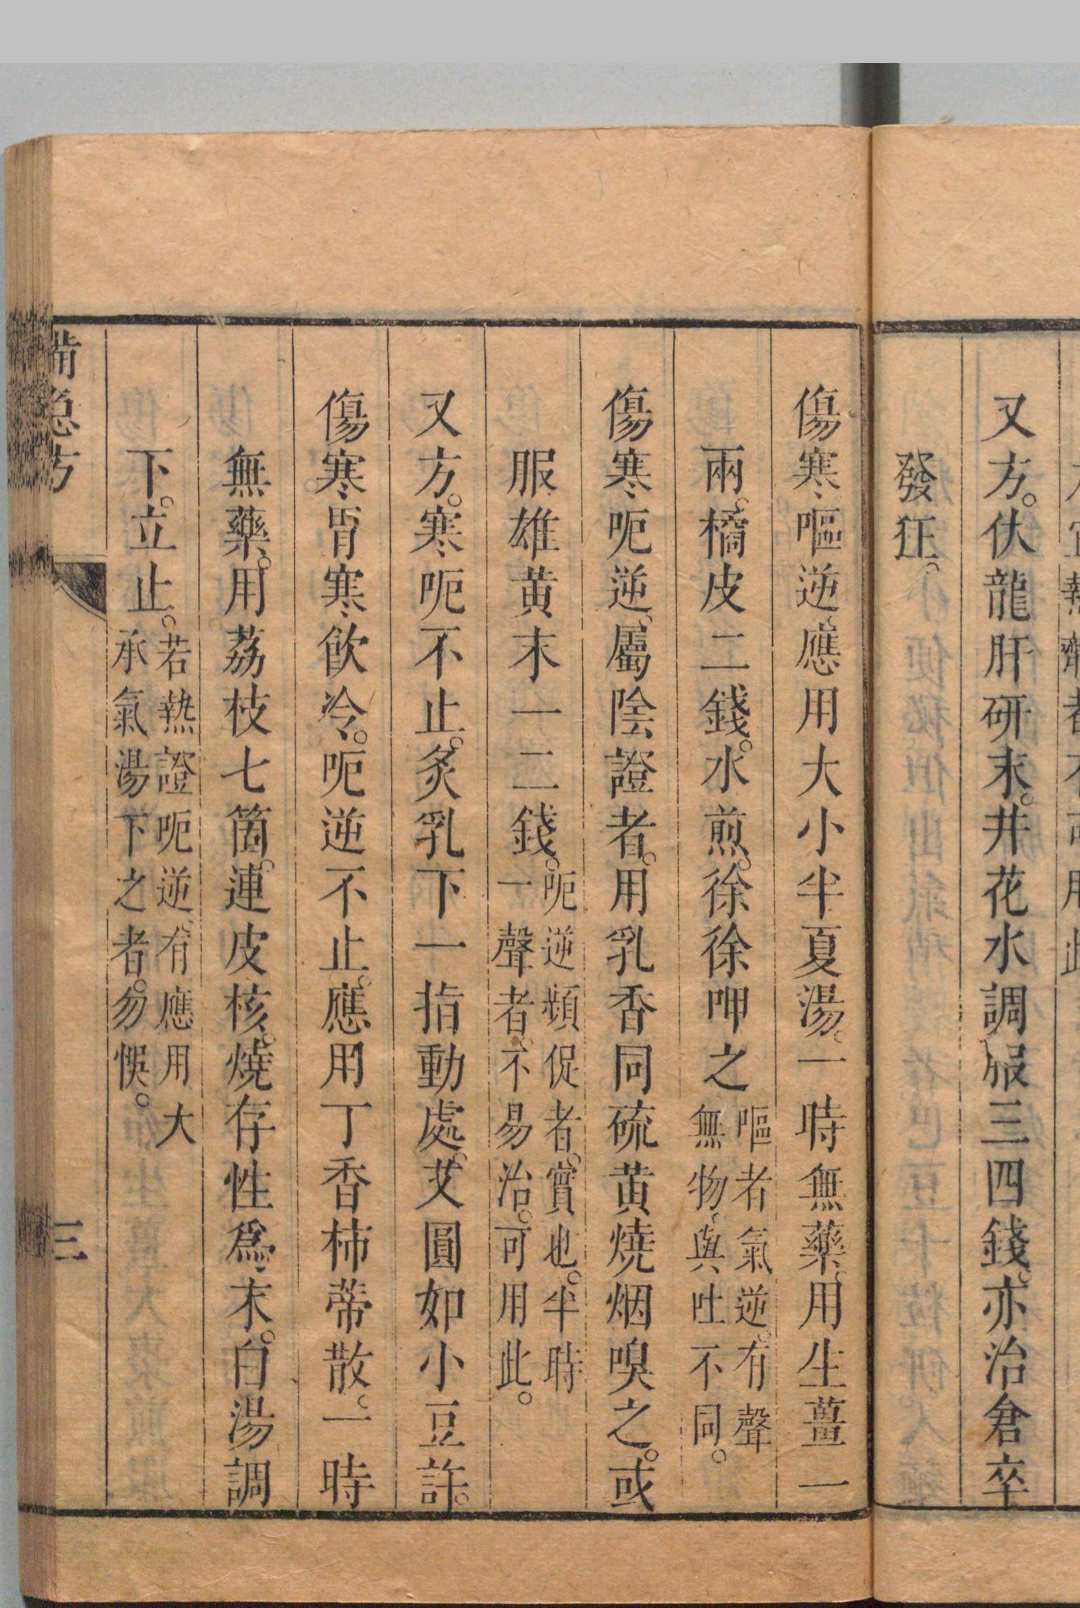 又方。伏龍肝研末。井花水調服三四錢。亦治倉卒
發狂。
傷寒、嘔逆、應用大小半夏湯。一時無藥、用生薑一
兩。橘皮二錢。水煎。徐徐呷之
嘔者氣逆。有聲
無物。與吐不同。
傷寒、呃逆、屬陰證者。用乳香同硫黃燒烟嗅之。或
服雄黃末一二錢。
呃逆頻促者。實也。半時
一聲者。不易治。可用此。
又方。寒、呃不止。炙乳下一指動處。艾圓如小豆許。
傷寒、胃寒、飲冷。呃逆不止。應用丁香柿蒂散。一時
無藥。用荔枝七箇。連皮核、燒存性爲末。白湯調
下。立止。
若熱證呃逆、有應用大
承氣湯下之者。勿悞。
備急方
三